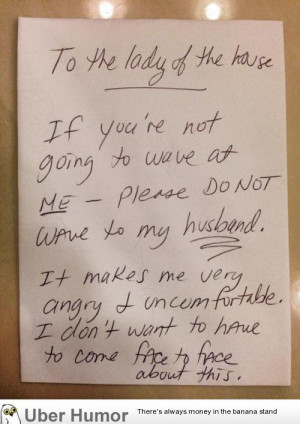 To the lady of the house
If you're not
going to wave at
ME - Please DO NOT
WAve to my husband.
It makes me very
angry & uncomfortable.
I don't want to hAve
to come fAce to fAce
about this.
Uber Humor
There's always money in the banana stand